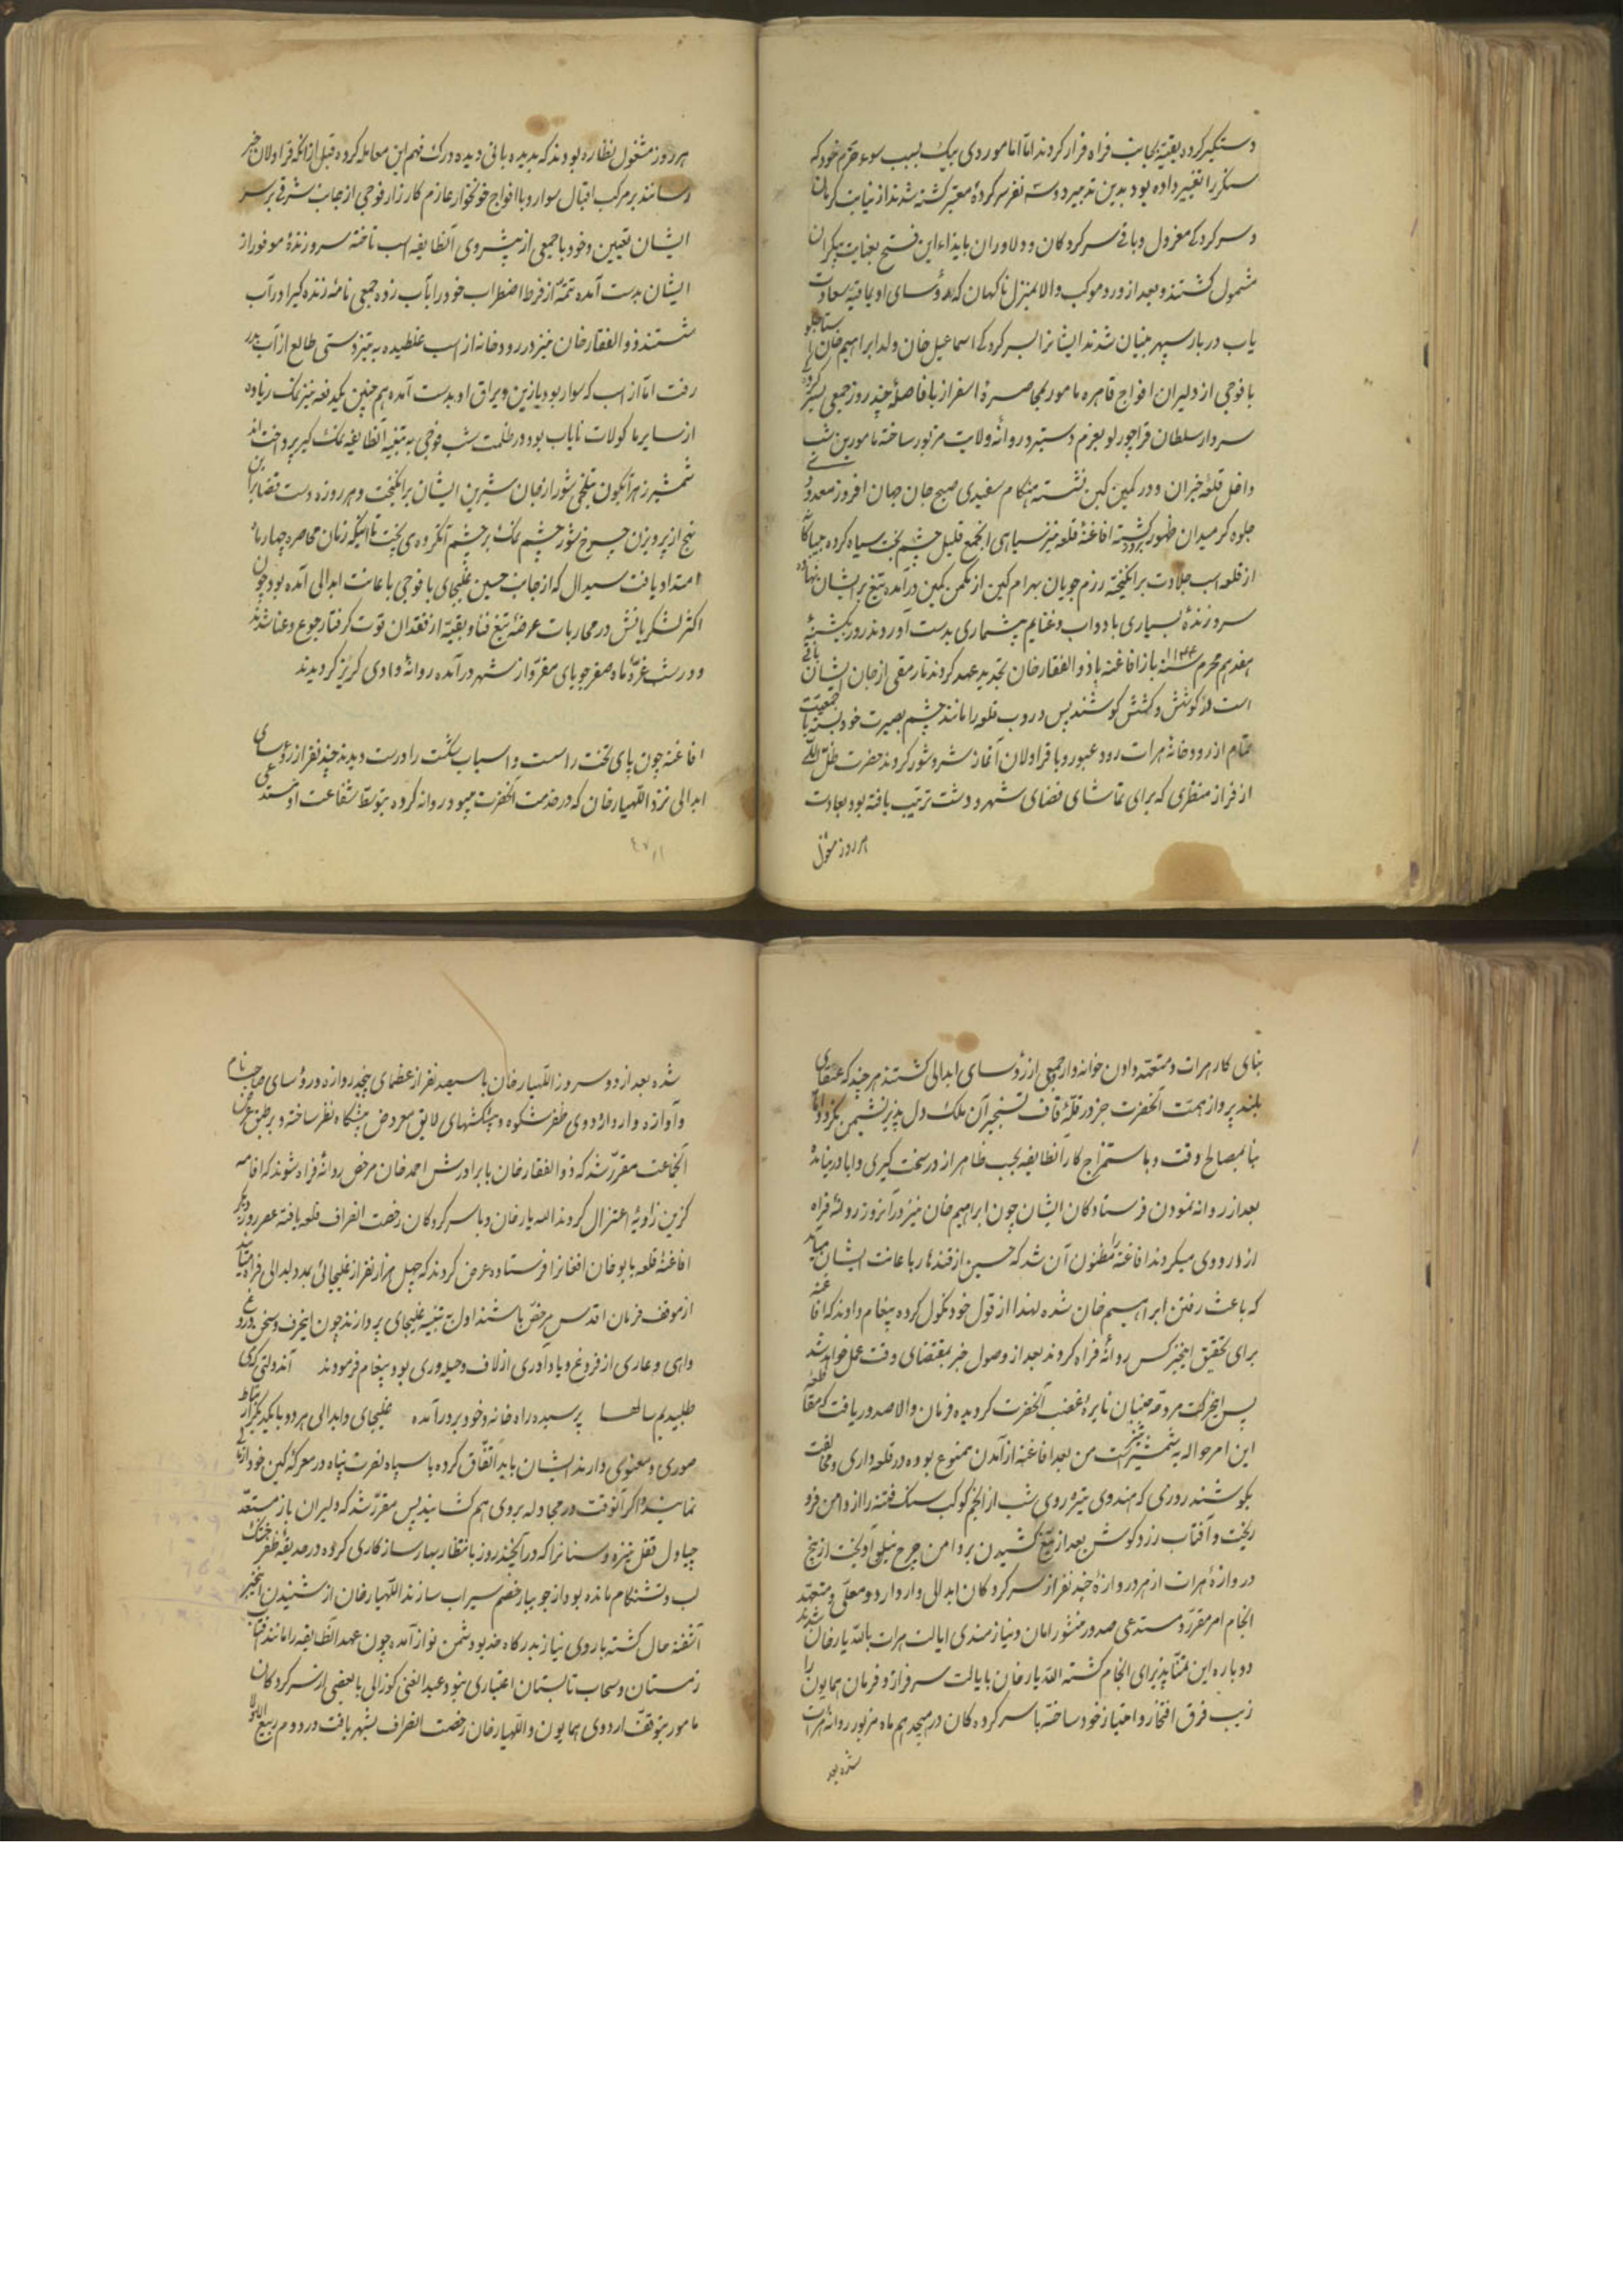 دستگیر کرده بقیه بجانب فراه فرار کردند اما اماموردی بیک بسبب سوء حزم خود که
سنکر را تغییر داده بود بدین تدبیر دوست نفر سرکردهٔ معتبر کشته شدند از نیابت کرمان
و سرکردکی معزول و باقی سرکردکان و دلاوران بایذاء این فتح بعنایت بیکران
مشمول کشتند و بعد از ورود موکب والا بمنزل ناکهان که رؤسای اویماقیه سعادت
یاب دربار سپهر بنیان شدند ایشانرا بسرکردکی اسماعیل خان ولد ابراهیم خان استاجلو
با فوجی از دلیران افواج قاهره مامور بمحاصرهٔ اسفراز بافاصلهٔ چند روز جمعی بسرکردکی
سردار سلطان قراچورلو بعزم دستبرد روانهٔ ولایت مزبور ساخته مامورین شب
داخل قلعهٔ خبران و در کمین کین نشسته هنکام سفیدی صبح جان جهان افروز معدودی
جلوه کر میدان ظهور کشته افاغنهٔ قلعه نیز سیاهی انجمع قلیل چشم بخت سیاه کرده بیباکانه
از قلعه اسب جلادت برانکیخته رزم جویان بهرام کین از مکمن کمین درآمده تیغ بر ایشان نهاده
سر و زندهٔ بسیاری با دواب و غنایم بیشماری بدست آوردند روز یکشنبهٔ
هفدهم محرم سنه ۱۱۴۴ باز افاغنه با ذوالفقار خان تجدید عهد کردند تا رمقی از جان ایشان باقی
است در کوشش و کشش کوشند پس دروب قلعه را مانند چشم بصیرت خود بسته با جمعیت
تمام از رودخانهٔ هرات رود عبور و با قراولان آغاز شر و شور کردند حضرت ظل اللهی
از فراز منظری که برای تماشای فضای شهر و دشت ترتیب یافته بود بعادت
هر روز مشغول
هر روز مشغول نظاره بودند که بدیده بانی دیده درک فهم این معامله کرده قبل از آنکه قراولان خبر
رسانند بر مرکب اقبال سوار و با افواج خونخوار عازم کارزار فوجی از جانب شرقی بر سر
ایشان تعیین و خود با جمعی از پیشروی آنطایفه اسب تاخته سر و زندهٔ موفور از
ایشان بدست آمده تتمه از فرط اضطراب خود را بآب زده جمعی نامهٔ زنده کیرا در آب
شستند ذوالفقار خان نیز در رودخانه از اسب غلطیده به تیزدستی طالع از آب بدر
رفت اما از اسب که سوار بود با زین و یراق او بدست آمده هم چنین یکدفعه نیز نمک زیاده
از سایر ماکولات نایاب بود در ظلمت شب فوجی به تنبیه آنطایفه نمک کیر پرداختند
شمشیر زهرآبگون بتلخی شور از جان شیرین ایشان برانکیخت و هر روزه دست قضا بر این
نهج از پرویزن چرخ شور چشم نمک بر چشم آنکروه می بیخت تا اینکه زمان محاصره چهار ماه
امتداد یافت سیدال که از جانب حسین غلیجای با فوجی باعانت ابدالی آمده بود چون
اکثر لشکریانش در محاربات عرضهٔ تیغ فنا و بقیه از فقدان قوت کرفتار جوع و عنا شدند
و در شب غرهٔ ماه صفر جویای مفر و از شهر درآمده روانهٔ وادی کریز کردیدند
افاغنه چون پای تخت را سست و اسباب شکست را درست دیدند چند نفر از رؤسای
ابدالی نزد اللهیار خان که در خدمت آنحضرت میبود روانه کرده بتوسط شفاعت او مستدعی
بنای کار هرات و متعهد دادن خوانه‌وار جمعی از رؤسای ابدالی کشتند هر چند که عنقای
بلند پرواز همت آنحضرت جز در قلهٔ قاف تسخیر آن ملک دل پذیر نشیمن نکزد اما
بنا بمصالح وقت و باستمزاج کار آنطایفه بحسب ظاهر از در سخت کیری و ابا در نیامده
بعد از روانه نمودن فرستادکان ایشان چون ابراهیم خان نیز در آنروز روانهٔ فراه
از اردوی میکردند افاغنه را مظنون آن شد که حسین از قندهار باعانت ایشان میآید
که باعث رفتن ابراهیم خان شده لهذا از قول خود نکول کرده پیغام دادند که افاغنه
برای تحقیق اینخبر کس روانهٔ فراه کردند بعد از وصول خبر بمقتضای وقت عمل خواهد شد
پس اینحرکت مروحه جنبان نایرهٔ غضب آنحضرت کردیده فرمان والا صدور یافت که مقاطعه
این امر حواله به شمشیر تیز است من بعد افاغنه از آمدن ممنوع بوده در قلعه داری و مخالفت
بکوشند روزی که هندوی تیره روی شب از انجم کوکب سنک فتنه را از دامن فرو
ریخت و آفتاب زرد کوش بعد از تیغ کشیدن بر دامن چرخ نیلی آویخت از پنج
دروازهٔ هرات از هر دروازهٔ چند نفر از سرکردکان ابدالی وارد اردو معلی و متعهد
انجام امر مقرر و مستدعی صدور منشور امان و نیازمندی ایالت هرات باللّه یارخان شدند
دوباره این تمنا پذیرای انجام کشته اللّه یارخان بایالت سرفراز و فرمان همایون را
زیب فرق افتخار و امتیاز خود ساخته با سرکرده کان در هیجدهم ماه مزبور روانهٔ هرات
شده بعد
شده بعد از دو سه روز اللهیار خان با سیصد نفر از عظمای پنجدروازه و رؤسای صاحب نام
و آوازه وارد اردوی ظفر شکوه و پیشکشهای لایق معروض پیشکاه نظر ساخته و بر طبق عرض
آنجماعت مقرر شد که ذوالفقار خان با برادرش احمد خان مرخص روانهٔ فراه شوند که اقامه
کزین زاویهٔ اعتزال کردند اللّه یارخان و با سرکردکان رخصت انصراف قلعه یافته عصر روز دیکر
افاغنهٔ قلعه بابو خان افغانرا فرستاده عرض کردند که چهل هزار نفر از غلیجائی بمدد ابدالی فراه میآیند
از موقف فرمان اقدس مرخص باشند اول به تنبیه غلیجای پردازند چون اینحرف و سخن دروغ
واهی و عاری از فروغ و باد آوری از لاف و حیله‌وری بود پیغام فرمودند آندولتی که می
طلبیدیم سالها پرسیده راه خانه و خود بر در آمده غلیجای و ابدالی هر دو با یکدیکر ارتباط
صوری و معنوی دارند ایشان باید اتفاق کرده با سپاه نصرت پناه در معرکه کین خود آزمائی
نمایند و اکر آنوقت در مجادله بروی هم کشایند پس مقرر شد که دلیران باز مستعد
چپاول قفل نیزه و سنانرا که در آنچند روز بانتظار بهار سازکاری کرده در حدیقهٔ ظفر خشک
لب و تشنکام مانده بود از جویبار خصم سیراب سازند اللهیار خان از شنیدن اینخبر
آشفته حال کشته با روی نیاز بدرکاه خدیو دشمن نواز آمده چون عهد آنطایفه را مانند آفتاب
زمستان و سحاب تابستان اعتباری نبود عبدالغنی کوزالی با بعضی از سرکردکان
مامور بتوقف اردوی همایون و اللهیار خان رخصت انصراف بشهر یافت در دوم ربیع الاول